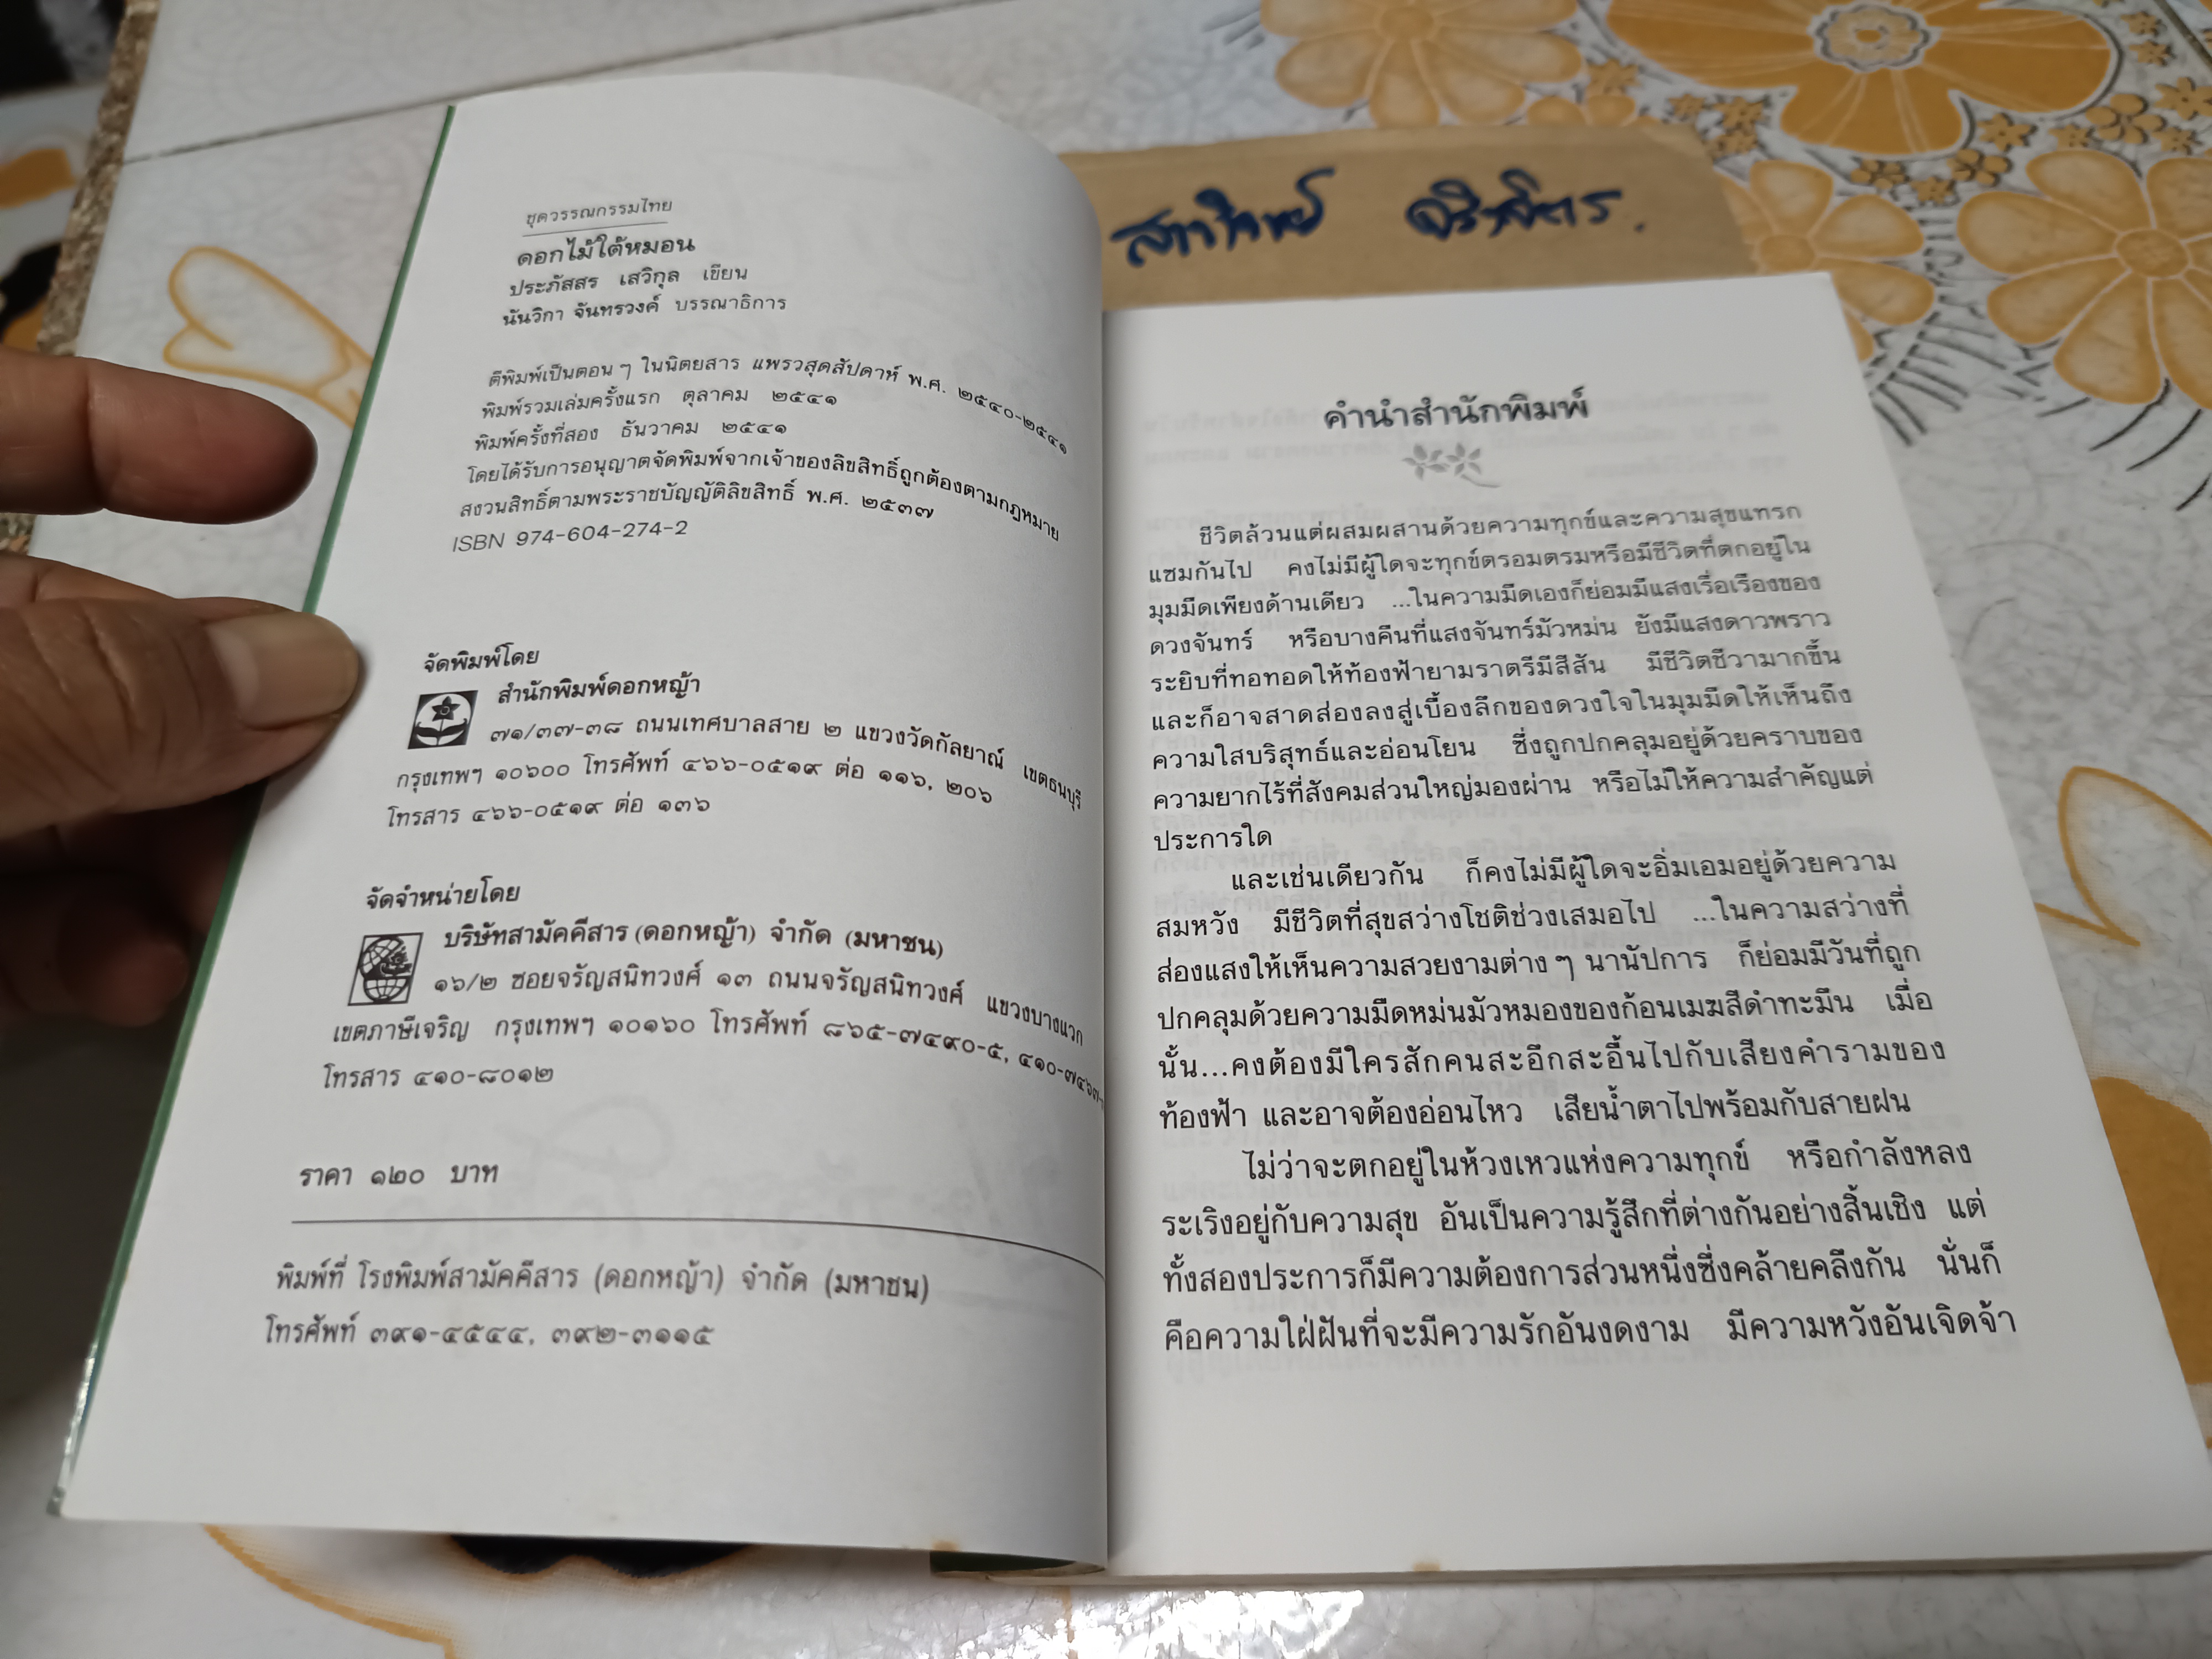 ชุดวรรณกรรมไทย
ดอกไม้ใต้หมอน
ประภัสสร เสวิกุล เขียน
นันวิกา จันทรวงค์ บรรณาธิการ
ตีพิมพ์เป็นตอน ๆ ในนิตยสาร แพรวสุดสัปดาห์ พ.ศ. ๒๕๔๐-๒๕๔๑
พิมพ์รวมเล่มครั้งแรก ตุลาคม ๒๕๔๑
พิมพ์ครั้งที่สอง ธันวาคม ๒๕๔๑
โดยได้รับการอนุญาตจัดพิมพ์จากเจ้าของลิขสิทธิ์ถูกต้องตามกฎหมาย
สงวนสิทธิ์ตามพระราชบัญญัติลิขสิทธิ์ พ.ศ. ๒๕๓๗
ISBN 974-604-274-2
จัดพิมพ์โดย
สำนักพิมพ์ดอกหญ้า
๗๑/๓๗-๓๘ ถนนเทศบาลสาย ๒ แขวงวัดกัลยาณ์ เขตธนบุรี
กรุงเทพฯ ๑๐๖๐๐ โทรศัพท์ ๔๖๖-๐๕๑๙ ต่อ ๑๑๖, ๒๐๖
โทรสาร ๔๖๖-๐๕๑๙ ต่อ ๑๓๖
จัดจำหน่ายโดย
บริษัทสามัคคีสาร (ดอกหญ้า) จำกัด (มหาชน)
๑๖/๒ ซอยจรัญสนิทวงศ์ ๑๓ ถนนจรัญสนิทวงศ์ แขวงบางแวก
เขตภาษีเจริญ กรุงเทพฯ ๑๐๑๖๐ โทรศัพท์ ๘๖๕-๗๔๙๐-๕,
โทรสาร ๔๑๐-๘๐๑๒
ราคา ๑๒๐ บาท
พิมพ์ที่ โรงพิมพ์สามัคคีสาร (ดอกหญ้า) จำกัด (มหาชน)
โทรศัพท์ ๓๙๑-๔๕๔๔, ๓๙๒-๓๑๑๕
คำนำสำนักพิมพ์
ชีวิตล้วนแต่ผสมผสานด้วยความทุกข์และความสุขแทรก
แซมกันไป คงไม่มีผู้ใดจะทุกข์ตรอมตรมหรือมีชีวิตที่ตกอยู่ใน
มุมมืดเพียงด้านเดียว ...ในความมืดเองก็ย่อมมีแสงเรื่อเรืองของ
ดวงจันทร์ หรือบางคืนที่แสงจันทร์มัวหม่น ยังมีแสงดาวพราว
ระยิบที่ทอทอดให้ท้องฟ้ายามราตรีมีสีสัน มีชีวิตชีวามากขึ้น
และก็อาจสาดส่องลงสู่เบื้องลึกของดวงใจในมุมมืดให้เห็นถึง
ความใสบริสุทธ์และอ่อนโยน ซึ่งถูกปกคลุมอยู่ด้วยคราบของ
ความยากไร้ที่สังคมส่วนใหญ่มองผ่าน หรือไม่ให้ความสำคัญแต่
ประการใด
และเช่นเดียวกัน ก็คงไม่มีผู้ใดจะอิ่มเอมอยู่ด้วยความ
สมหวัง มีชีวิตที่สุขสว่างโชติช่วงเสมอไป ...ในความสว่างที่
ส่องแสงให้เห็นความสวยงามต่าง ๆ นานัปการ ก็ย่อมมีวันที่ถูก
ปกคลุมด้วยความมืดหม่นมัวหมองของก้อนเมฆสีดำทะมึน เมื่อ
นั้น...คงต้องมีใครสักคนสะอึกสะอื้นไปกับเสียงคำรามของ
ท้องฟ้า และอาจต้องอ่อนไหว เสียน้ำตาไปพร้อมกับสายฝน
ไม่ว่าจะตกอยู่ในห้วงเหวแห่งความทุกข์ หรือกำลังหลง
ระเริงอยู่กับความสุข อันเป็นความรู้สึกที่ต่างกันอย่างสิ้นเชิง แต่
ทั้งสองประการก็มีความต้องการส่วนหนึ่งซึ่งคล้ายคลึงกัน นั่นก็
คือความใฝ่ฝันที่จะมีความรักอันงดงาม มีความหวังอันเจิดจ้า